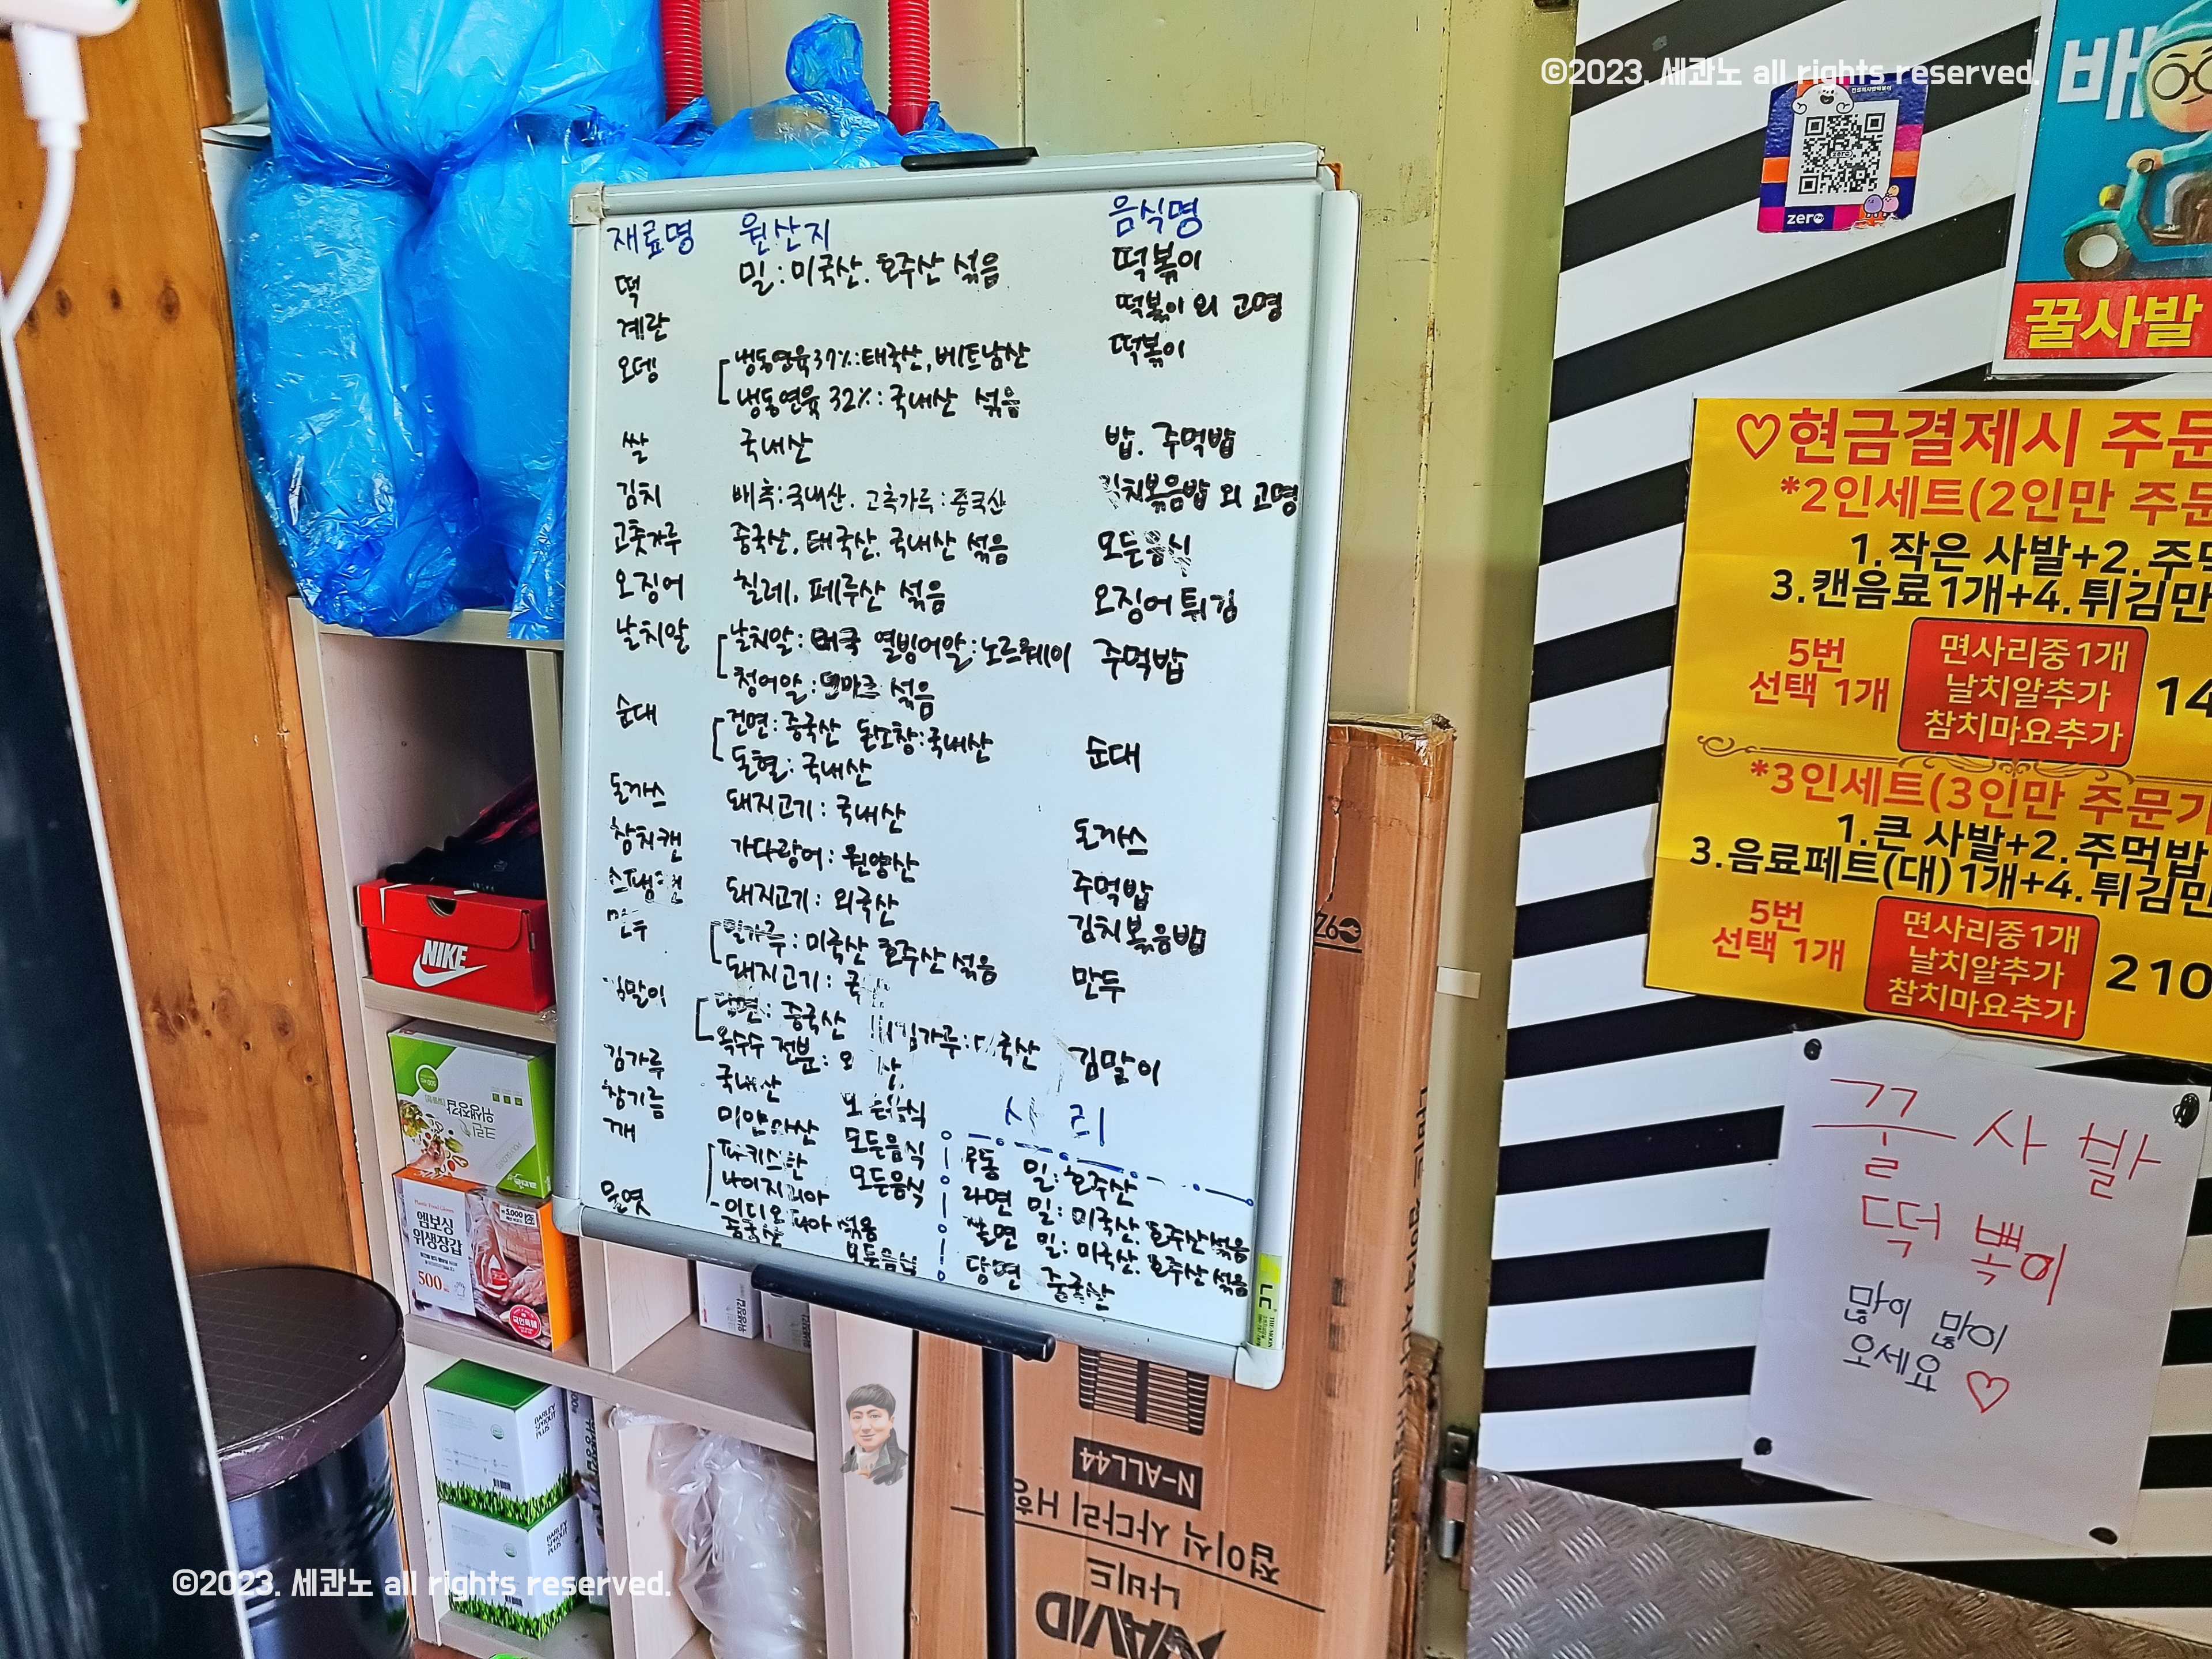 ©2023. 세콴노 all rights reserved.
재료명 원산지 음식명
떡 밀: 미국산. 호주산 섞음 떡볶이
계란 떡볶이 외 고명
오뎅 냉동연육37%:태국산, 베트남산 떡볶이
냉동연육 32%: 국내산 섞음
쌀 국내산 밥. 주먹밥
김치 배추:국내산. 고춧가루:중국산 김치볶음밥 외 고명
고춧가루 중국산, 태국산, 국내산 섞음 모든음식
오징어 칠레, 페루산 섞음 오징어 튀김
날치알 날치알: 열빙어알:노르웨이 주먹밥
청어알: 섞음
순대 건면: 중국산 돈소창:국내산 순대
돈혈: 국내산
돈까스 돼지고기: 국내산 돈까스
참치캔 가다랑어: 원양산 주먹밥
돼지고기: 외국산 김치볶음밥
만두 밀가루: 미국산 호주산 섞음 만두
돼지고기:
당면: 중국산 김말이
옥수수 전분:
김가루 국내산
참기름 미얀마산 모든음식
깨 파키스탄 모든음식
나이지리아
섞음
물엿 중국산 모든음식
사리
우동 밀: 호주산
라면 밀: 미국산. 호주산섞음
쫄면 밀: 미국산. 호주산 섞음
당면 중국산
zero
배
꿀사발
♡현금결제시 주문
*2인세트(2인만 주문
1.작은 사발+2.주먹
3.캔음료1개+4.튀김만
5번
선택 1개
면사리중1개
날치알추가
참치마요추가
14
*3인세트(3인만 주문가
1.큰 사발+2.주먹밥
3.음료페트(대)1개+4.튀김만
5번
선택 1개
면사리중1개
날치알추가
참치마요추가
210
꿀사발
떡볶이
많이 많이
오세요 ♡
NIKE
크린
위생장갑
엠보싱
위생장갑
500
BARLEY
SPROUT
PLUS
BARLEY
SPROUT
PLUS
LC
N-ALL44
접이식 사다리 H형
나비드
NAVID
©2023. 세콴노 all rights reserved.